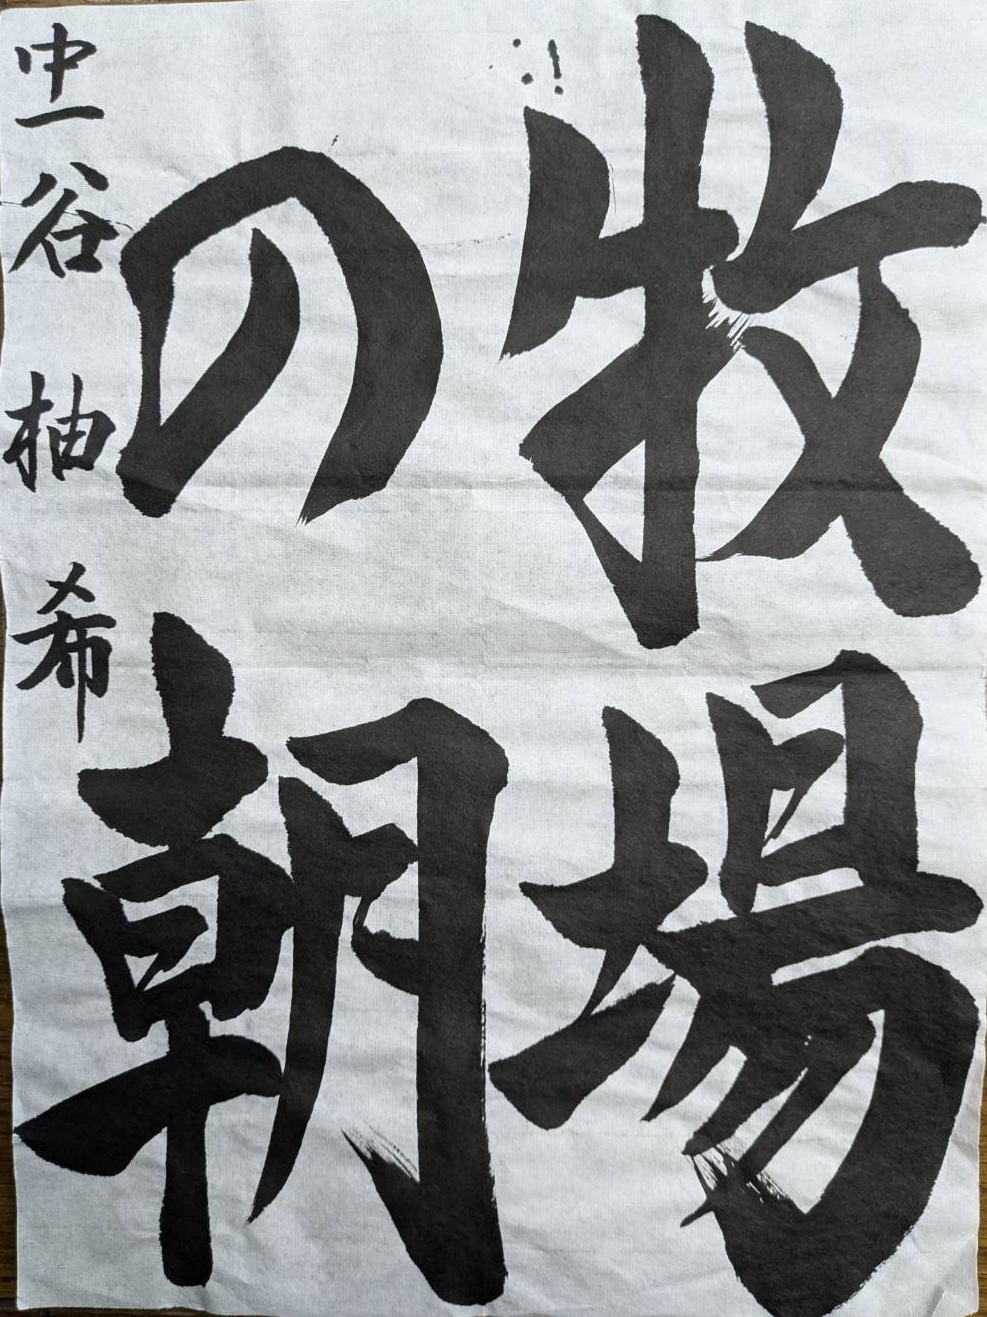 牧場
の朝
中一 谷 柚希